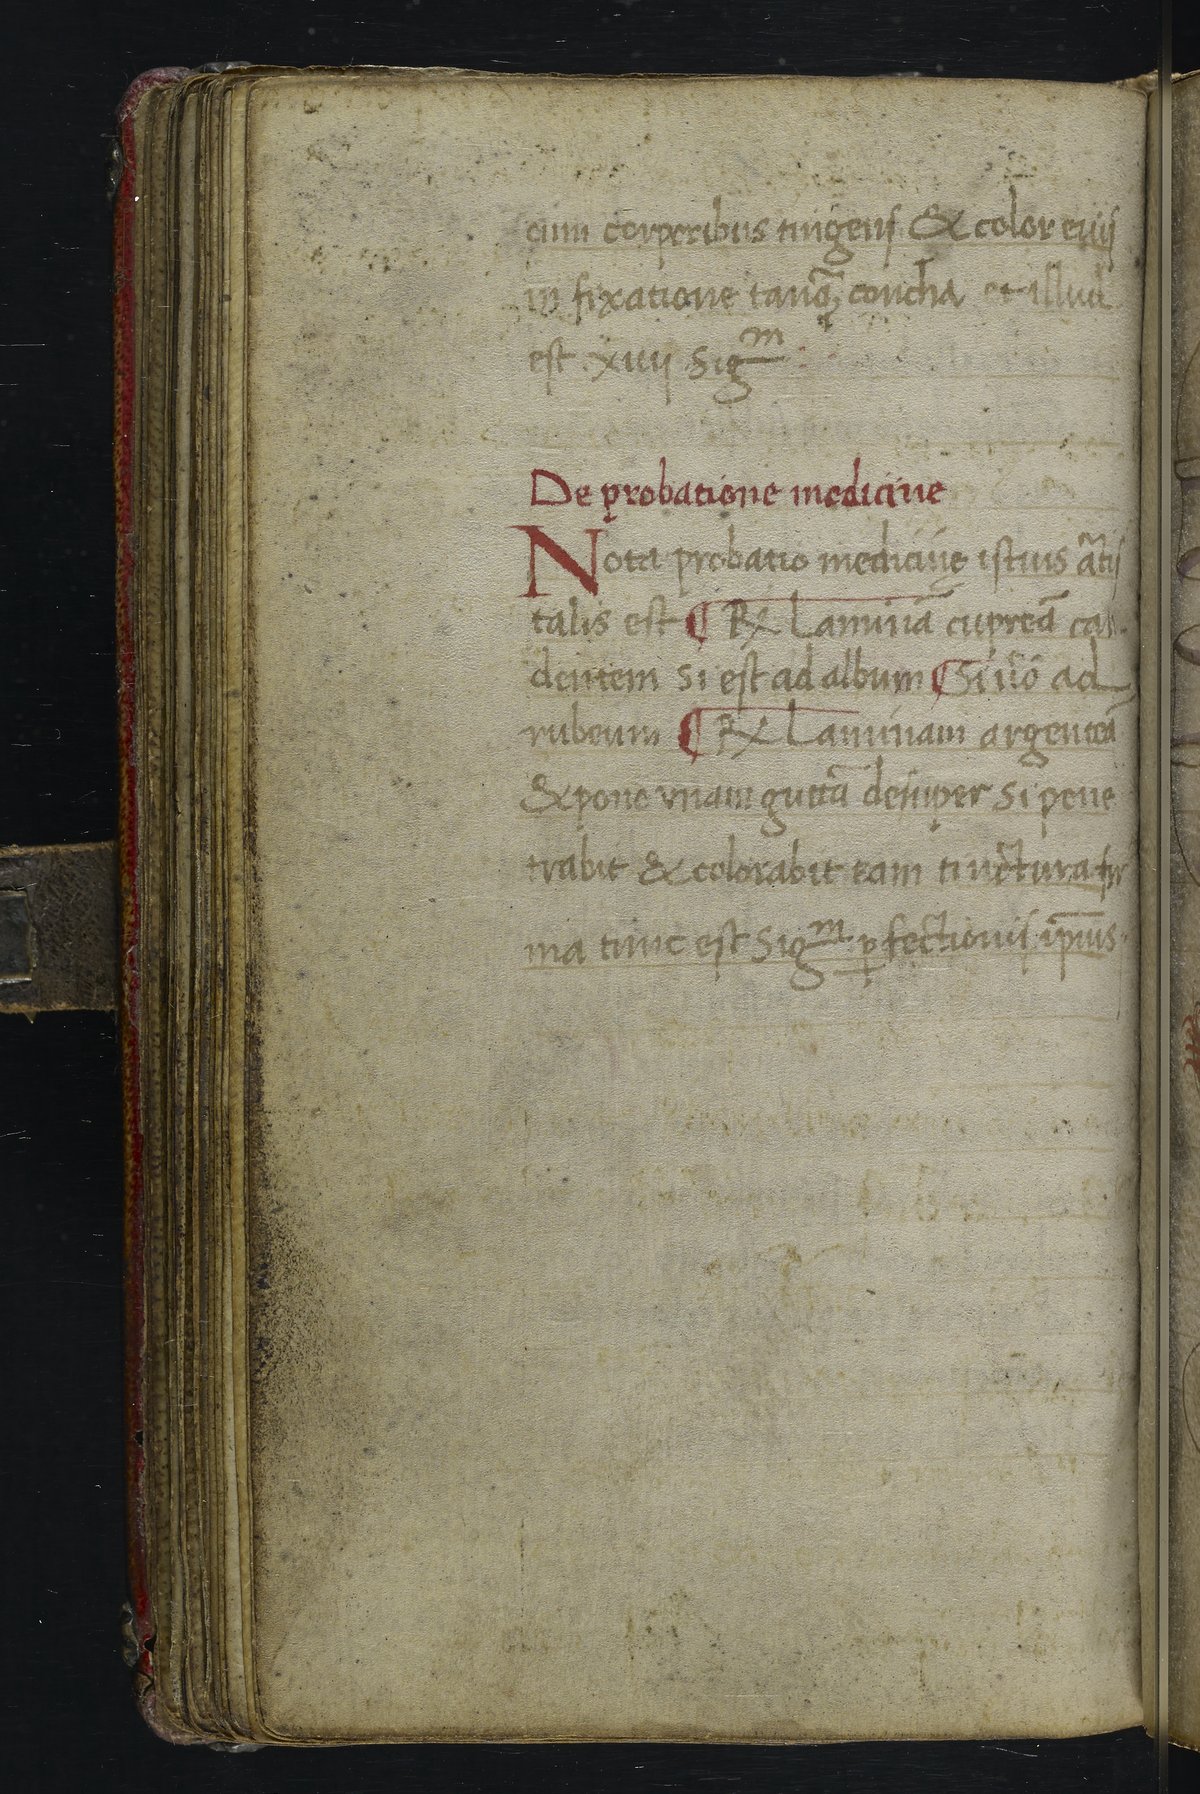 cum corporibus tingens & color eius
in fixatione tanq̃ concha et illud
est xiiij Sigᵐ
De probatione medicine
Nota probatio medicinę istius ãtis
talis est ¶ Rx Laminã cupreã can
dentem si est ad album ¶ Si ũo ad
rubeum ¶ Rx Laminam argenteã
& pone vnam guttã desuper si pene
trabit & colorabit eam tinctura fir
ma tunc est Sigᵐ ꝑfectionis ip̃ius